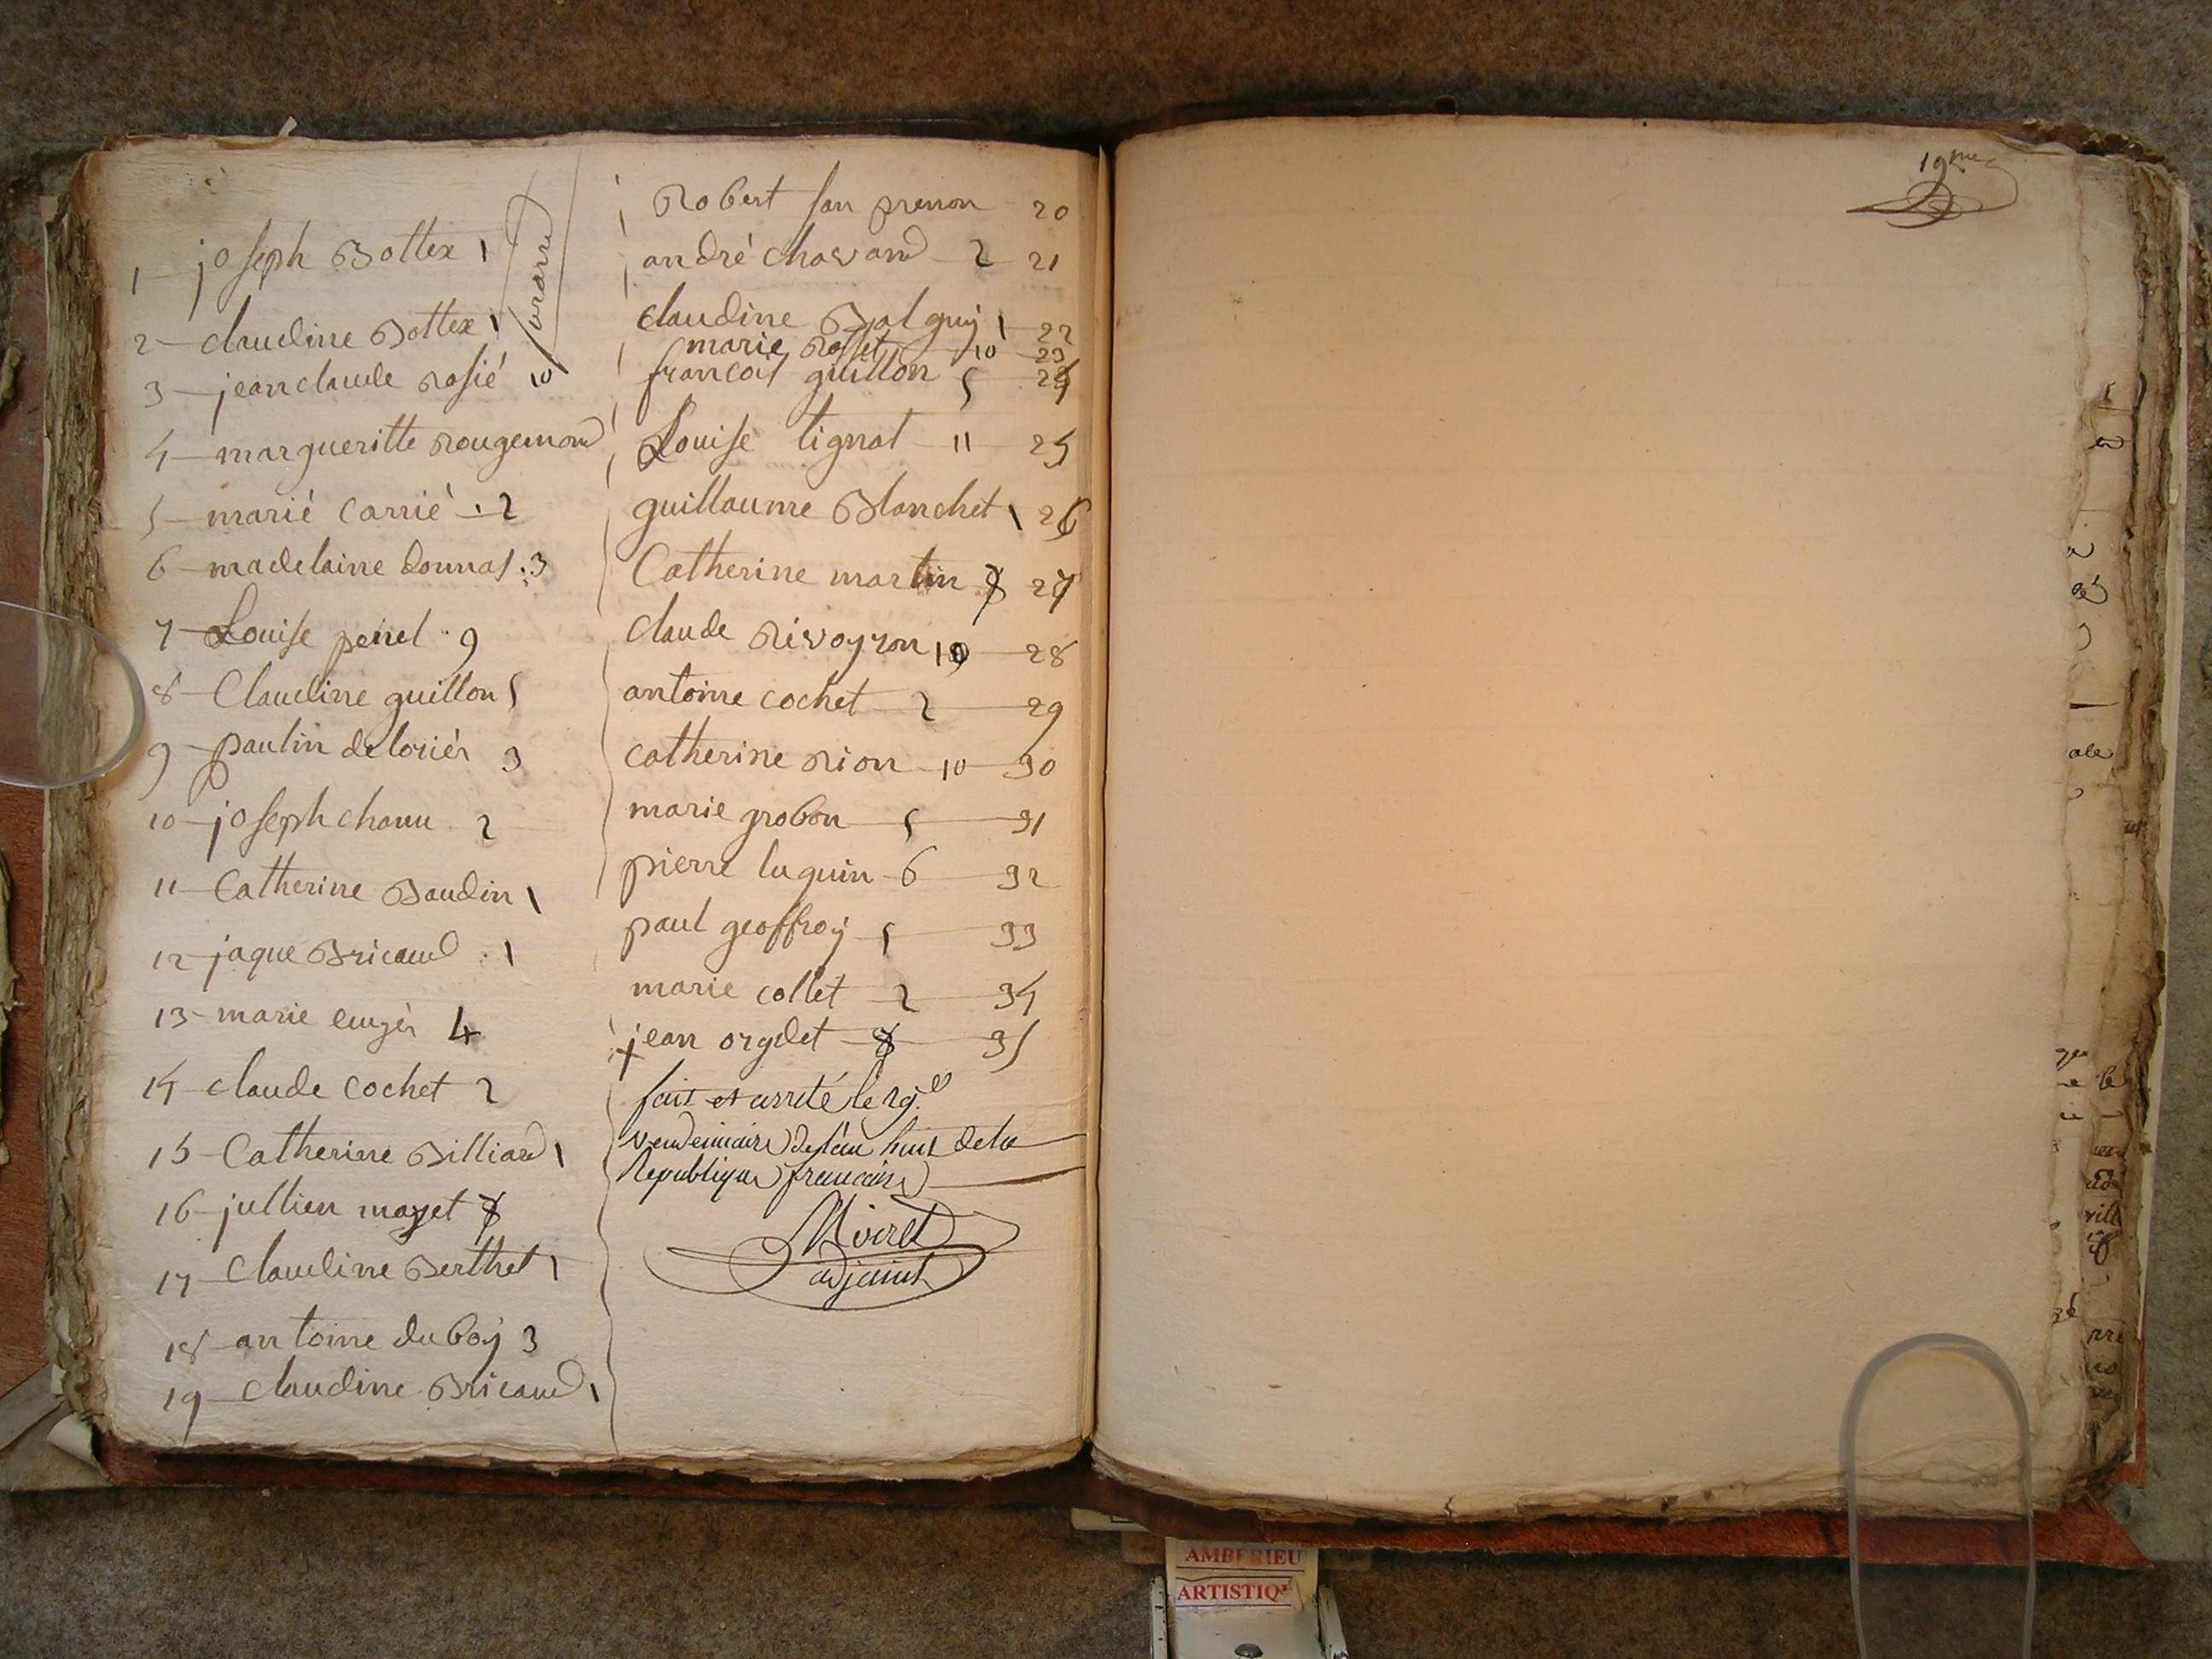 1 joseph Bottex 1
2 claudine Bottex 1
3 jean claude rosié 10
4 margueritte rougemond
5 marié carrié 2
6 madelaine dounas 3
7 Louise penel 9
8 Claudine guillon 5
9 paulin delorier 3
10 joseph chanu 2
11 Catherine Baudin 1
12 jaque Bricaud 1
13 marie 4
14 claude cochet 2
15 Catherine Billiard 1
16 jullien mayet 8
17 Claudine Berthet 1
18 antoine duboy 3
19 Claudine Bricaud 1
Robert san prenon 20
andré chavand 2 21
claudine Balguy 1 22
marie rosset 10 23
francois guillon 5 24
Louise tignat 11 25
guillaume Blanchet 1 26
Catherine martin 8 27
claude rivoyron 10 28
antoine cochet 2 29
catherine rion 10 30
marie grobon 5 31
pierre luquin 6 32
paul geoffroy 5 33
marie collet 2 34
jean orgelet 8 35
fait et arreté le 29
vendemiaire de l'an huit de la
Republique francaise
adjoint
19me
AMBERIEU
ARTISTIQ